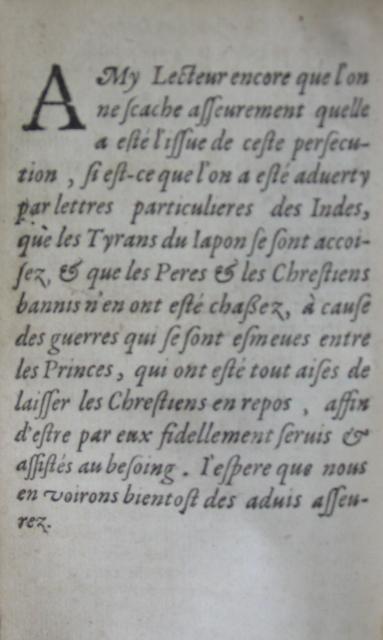 AMy Lecteur encore que l'on
ne sçache asseurement quelle
a esté l'issue de ceste persecu-
tion, si est-ce que l'on a esté aduerty
par lettres particulieres des Indes,
que les Tyrans du Iapon se sont accoi-
sez, & que les Peres & les Chrestiens
bannis n'en ont esté chaßez, à cause
des guerres qui se sont esmeues entre
les Princes, qui ont esté tout aises de
laisser les Chrestiens en repos, affin
d'estre par eux fidellement seruis &
assistés au besoing. I'espere que nous
en voirons bientost des aduis asseu-
rez.